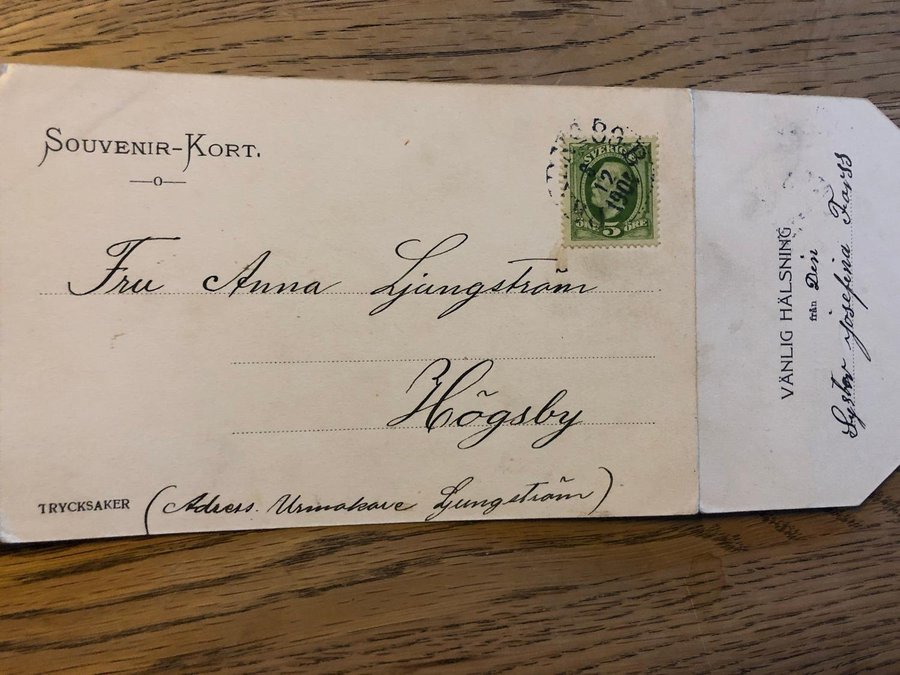 SOUVENIR-KORT.
SVERIGE
12
190
5 ÖRE
Fru Anna Ljungström
Högsby
TRYCKSAKER
(Adress. Urmakare Ljungström)
VÄNLIG HÄLSNING
från Din
Syster Josefina Forss